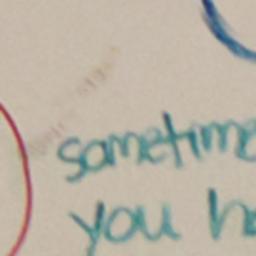 sometime
you ha